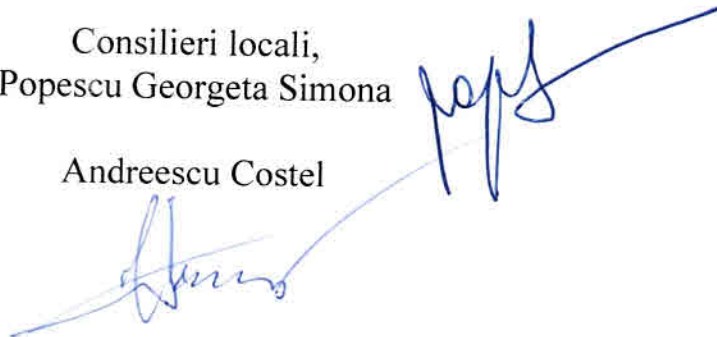 Consilieri locali,
Popescu Georgeta Simona
Andreescu Costel